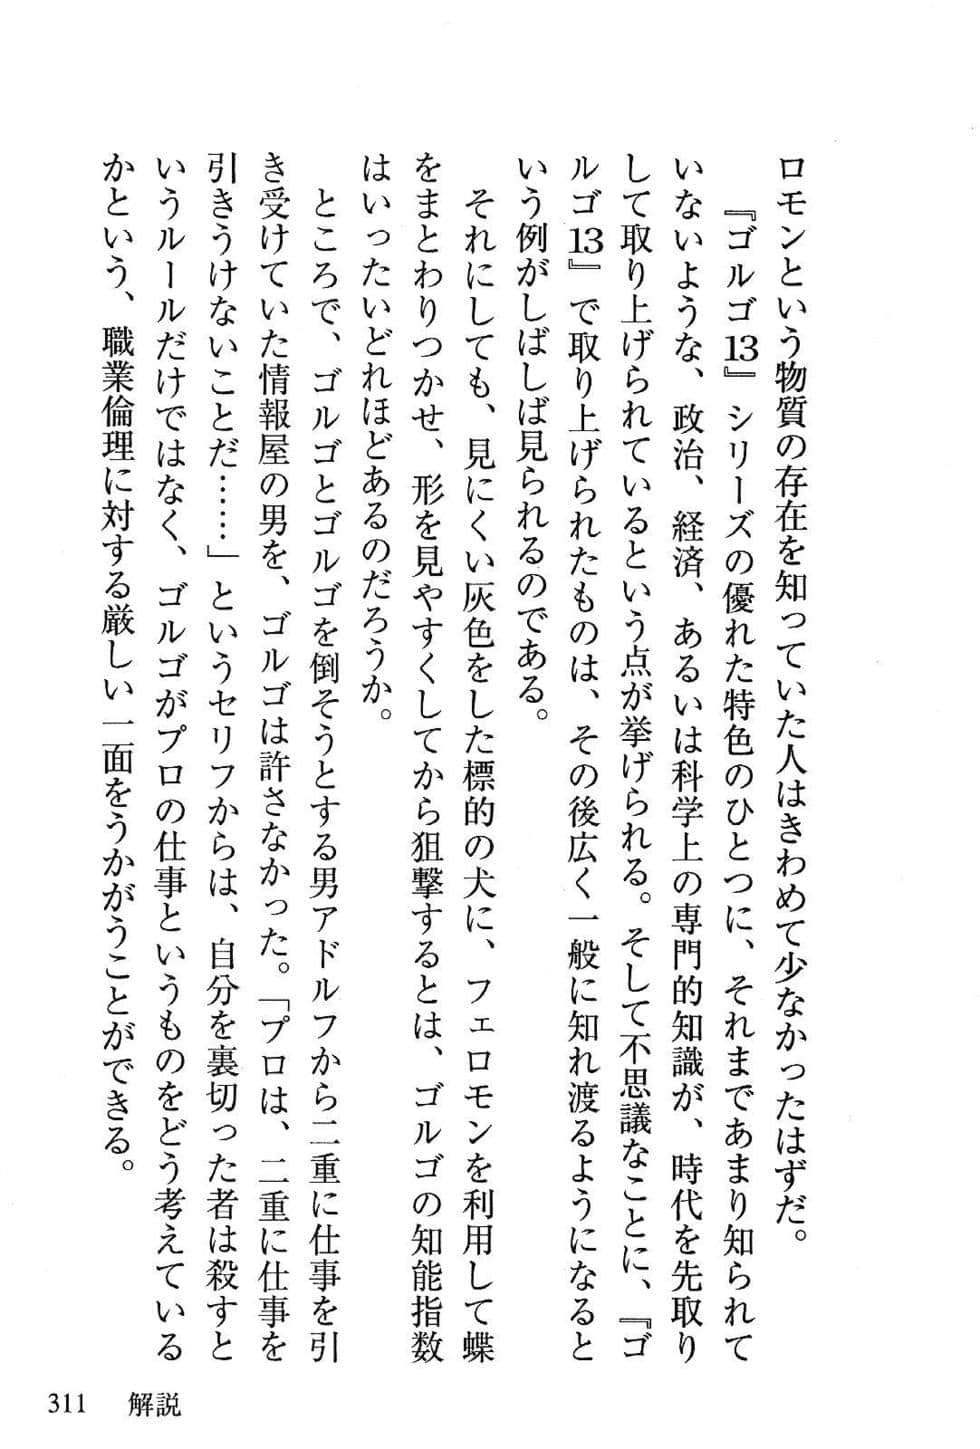 ロモンという物質の存在を知っていた人はきわめて少なかったはずだ。
『ゴルゴ13』シリーズの優れた特色のひとつに、それまであまり知られて
いないような、政治、経済、あるいは科学上の専門的知識が、時代を先取り
して取り上げられているという点が挙げられる。そして不思議なことに、『ゴ
ルゴ13』で取り上げられたものは、その後広く一般に知れ渡るようになると
いう例がしばしば見られるのである。
それにしても、見にくい灰色をした標的の犬に、フェロモンを利用して蝶
をまとわりつかせ、形を見やすくしてから狙撃するとは、ゴルゴの知能指数
はいったいどれほどあるのだろうか。
ところで、ゴルゴとゴルゴを倒そうとする男アドルフから二重に仕事を引
き受けていた情報屋の男を、ゴルゴは許さなかった。「プロは、二重に仕事を
引きうけないことだ……」というセリフからは、自分を裏切った者は殺すと
いうルールだけではなく、ゴルゴがプロの仕事というものをどう考えている
かという、職業倫理に対する厳しい一面をうかがうことができる。
311 解説